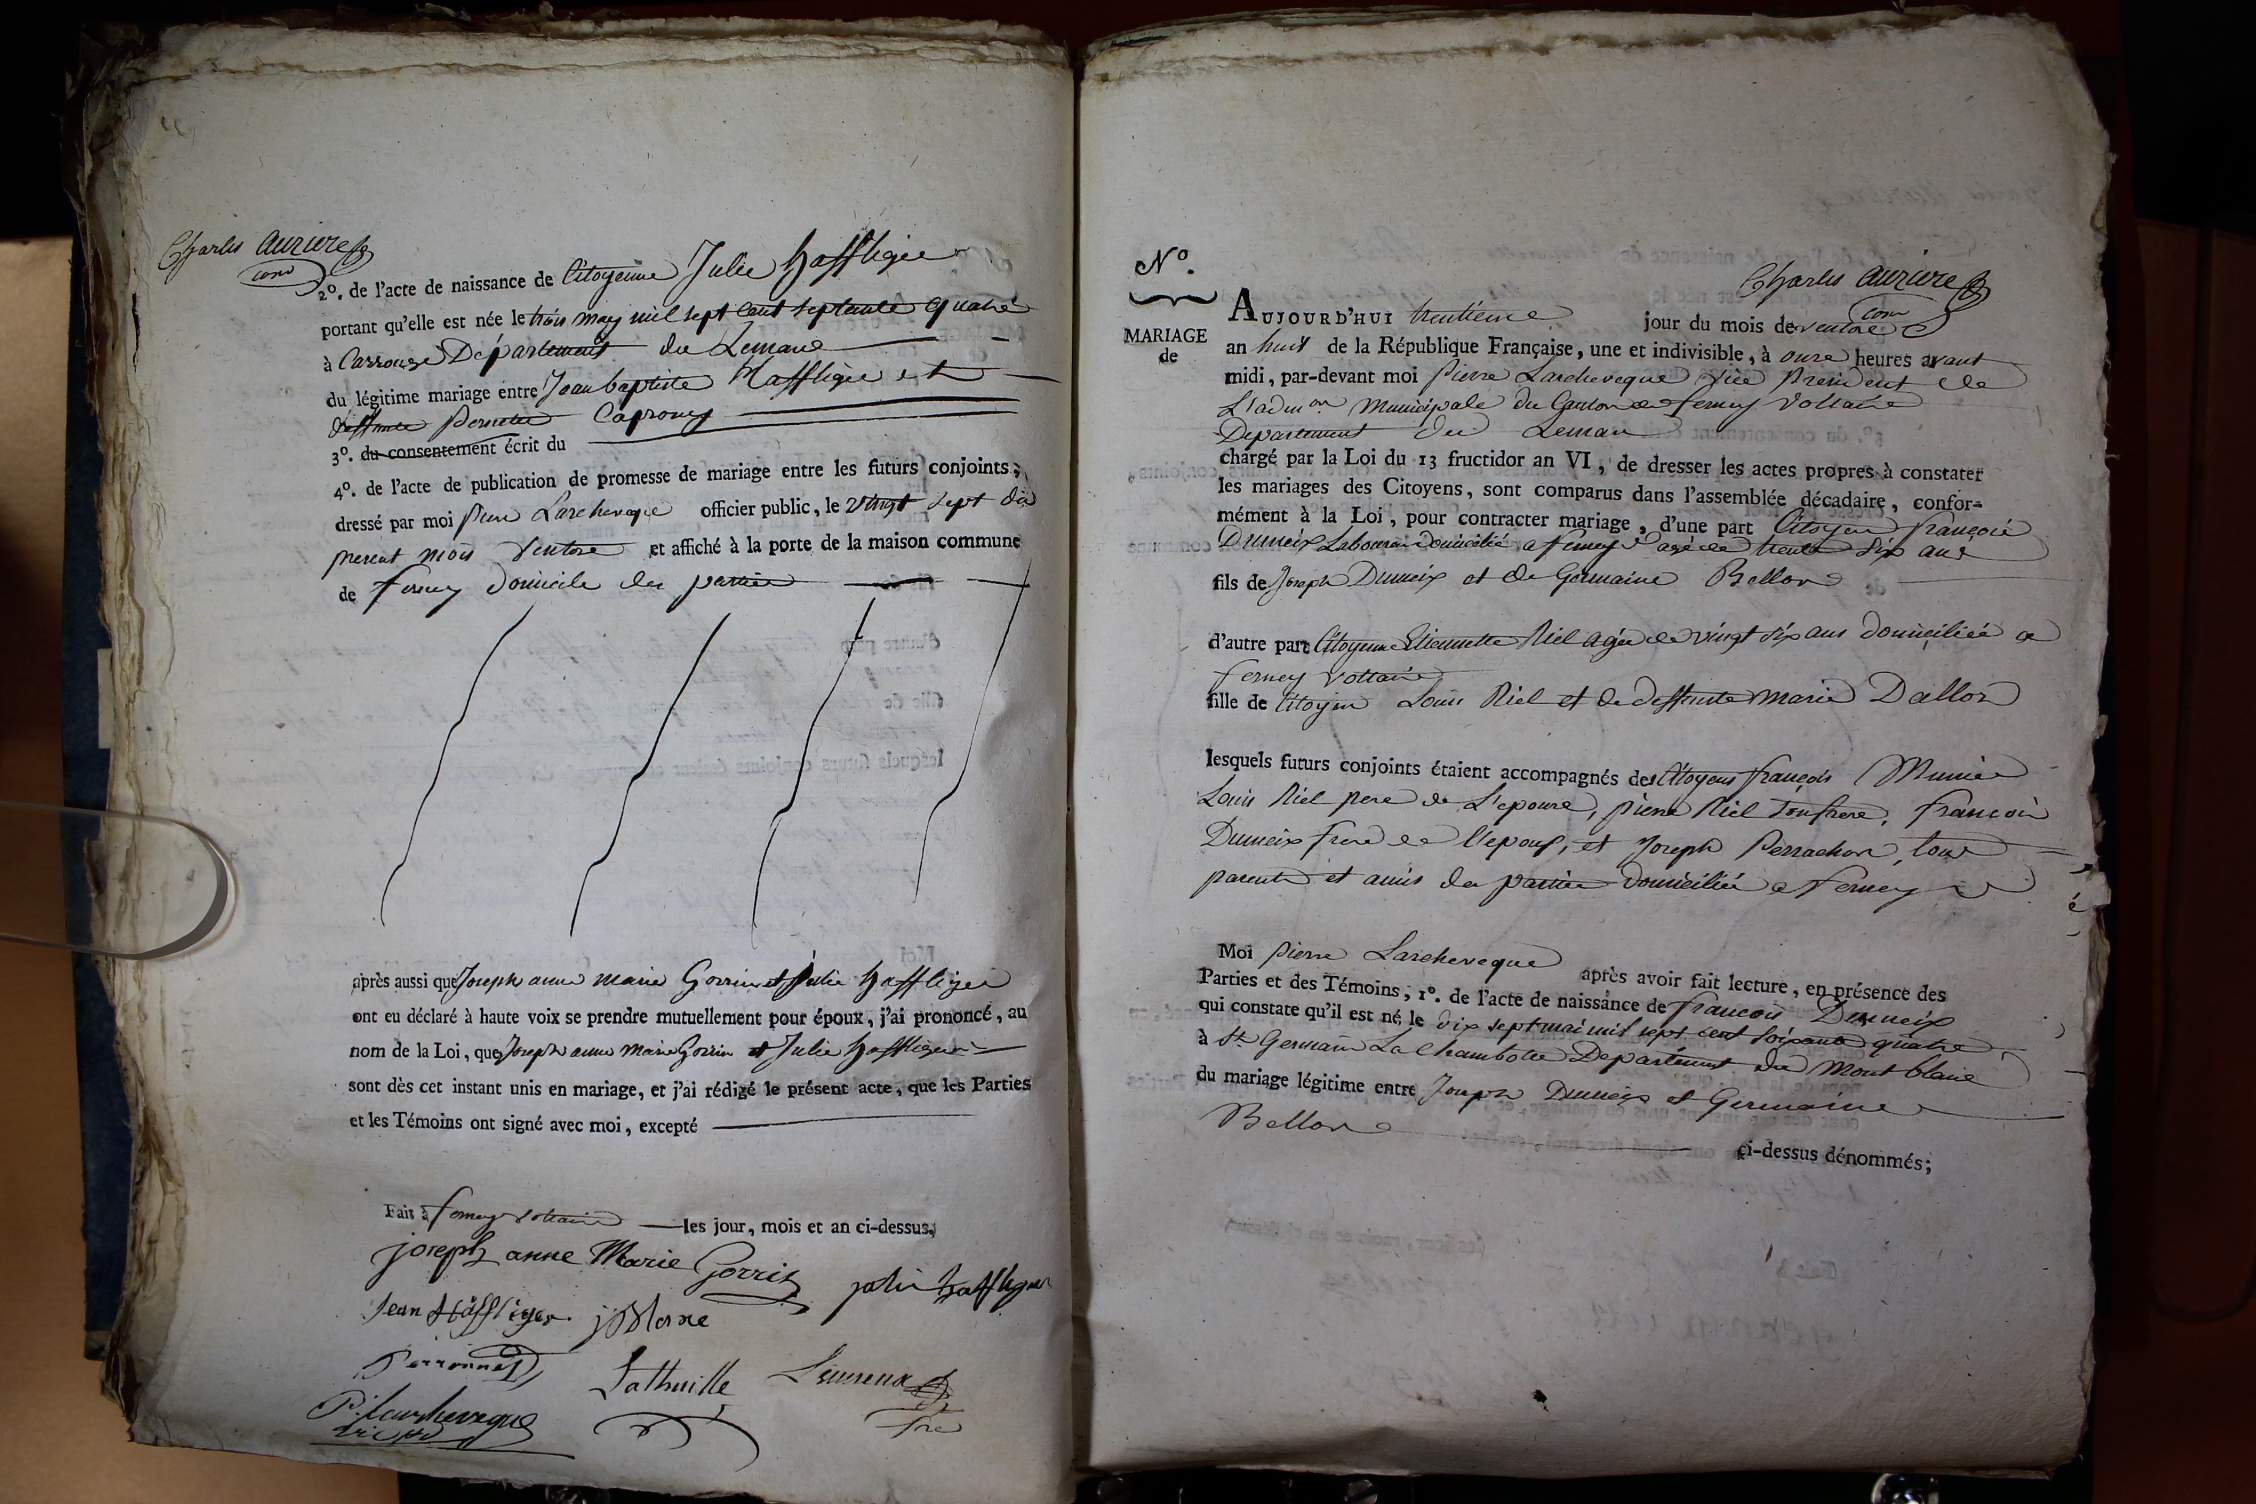 Charles Auziere
com
2º. de l'acte de naissance de Citoyenne Julie haffligée
portant qu'elle est née le trois may mil sept cent septante quatre
à Carrouge Département du Lemane
du légitime mariage entre Jean baptiste Haffligée et
deffunte Pernette Caprony
3º. du consentement écrit du
4º. de l'acte de publication de promesse de mariage entre les futurs conjoints ;
dressé par moi Pierre Larcheveque officier public, le vingt sept du
present mois Ventose et affiché à la porte de la maison commune
de ferney domicile des parties
après aussi que Joseph anne marie Gorrin et Julie haffligée
ont eu déclaré à haute voix se prendre mutuellement pour époux, j'ai prononcé, au
nom de la Loi, que Joseph anne Marie Gorrin et Julie haffligée
sont dès cet instant unis en mariage, et j'ai rédigé le présent acte, que les Parties
et les Témoins ont signé avec moi, excepté
Fait à ferney voltaire les jour, mois et an ci-dessus.
joseph anne Marie Gorrin
Jean Häffliger
Perronnet Lathuille
P. Larcheveque
Nº.
MARIAGE
de
Charles Auziere
com
AUJOURD'HUI trentieme jour du mois de ventose
an huit de la République Française, une et indivisible, à onze heures avant
midi, par-devant moi Pierre Larcheveque vice President de
L'admon Municipale du Canton de ferney Voltaire
Departement du Leman
chargé par la Loi du 13 fructidor an VI, de dresser les actes propres à constater
les mariages des Citoyens, sont comparus dans l'assemblée décadaire, confor-
mément à la Loi, pour contracter mariage, d'une part Citoyen françois
Dumeix Laboureur domicilié a ferney V agé de trente six ans
fils de Joseph Dumeix et de Germaine Bellon
d'autre part Citoyenne Etiennette Riel agée de vingt six ans domiciliée a
ferney voltaire
fille de Citoyen Louis Riel et de deffunte marie Dallon
lesquels futurs conjoints étaient accompagnés des Citoyens françois Munier
Louis Riel pere de L'epouse, pierre Riel son frere, françois
Dumeix frere de l'epoux, et Joseph Perrachon, tous
parents et amis des parties domiciliés a ferney V
Moi Pierre Larcheveque après avoir fait lecture, en présence des
Parties et des Témoins, 1º. de l'acte de naissance de françois Dumeix
qui constate qu'il est né le dix sept mai mil sept cent soixante quatre
à St Germain La Chambotte Departement du Mont blanc
du mariage légitime entre Joseph Dumeix et Germaine
Bellon
ci-dessus dénommés ;